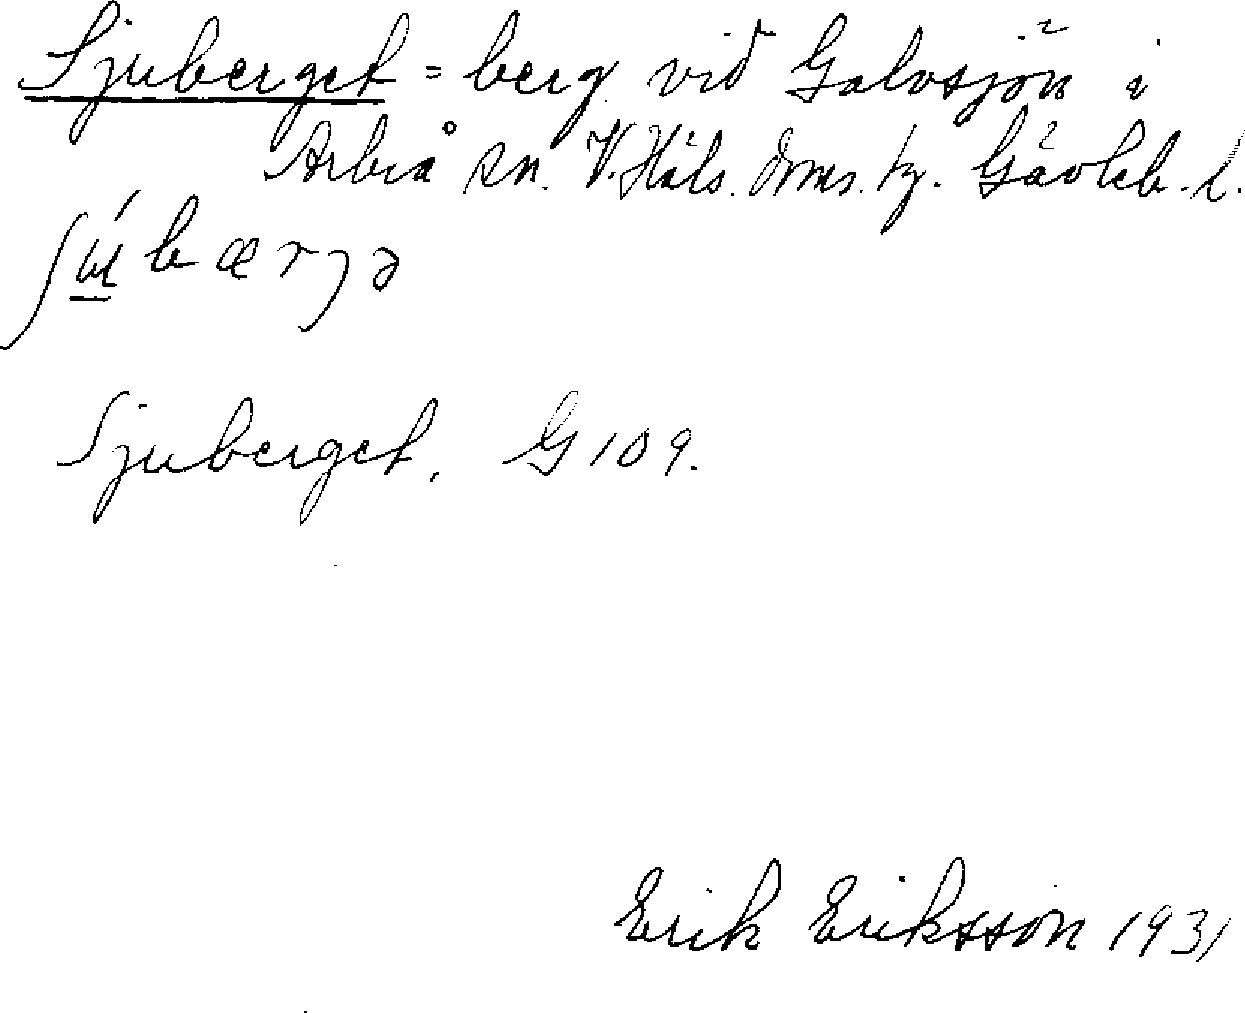 Sjuberget = berg vid Galvsjön i
Arbrå sn. V. Häls. dms. tg. Gävleb. l.
ʃúbærjə
Sjuberget. G 109.
Erik Eriksson 1931